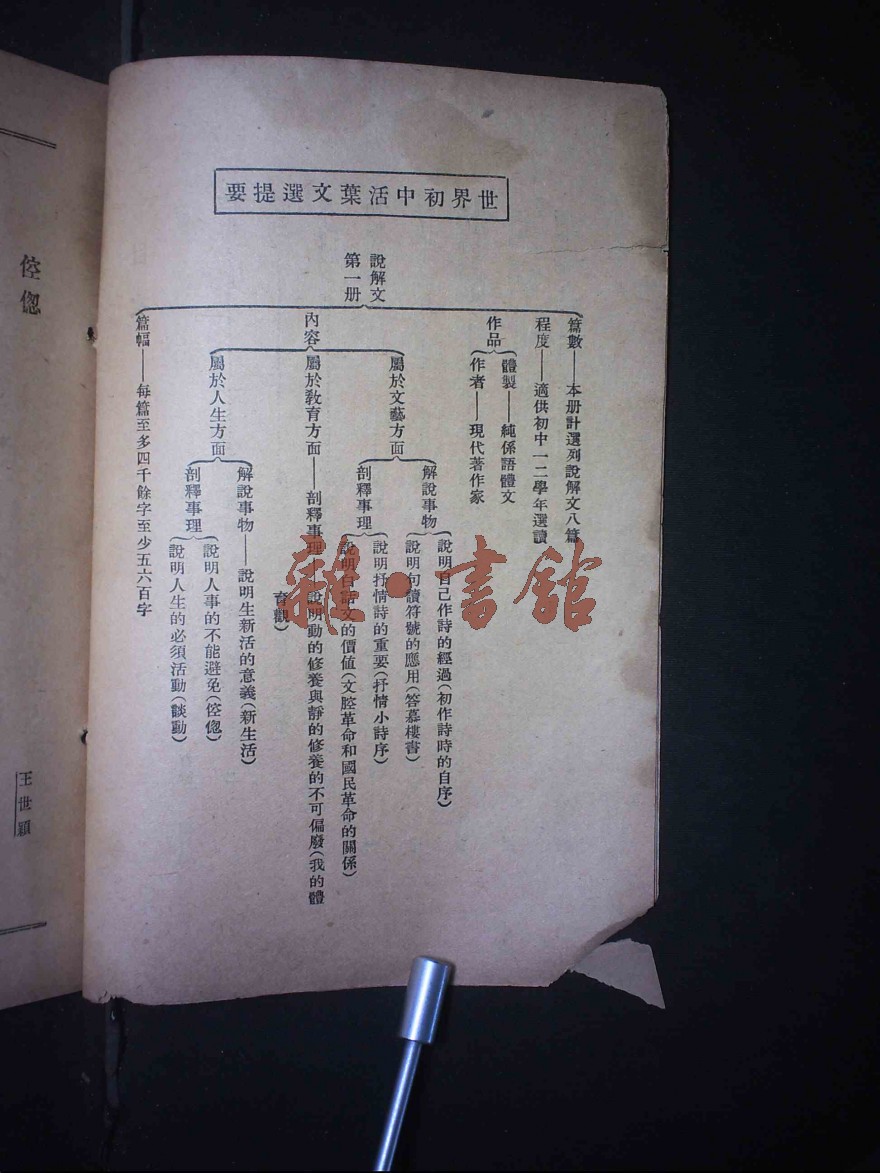 世界初中活葉文選提要
說解文
第一册
篇數——本册計選列說解文八篇
程度——適供初中一二學年選讀
作品
體製——純係語體文
作者——現代著作家
內容
屬於文藝方面
解說事物
說明自己作詩的經過(初作詩時的自序)
說明句讀符號的應用(答慕樓書)
剖釋事理
說明抒情詩的重要(抒情小詩序)
說明白話文的價値(文腔革命和國民革命的關係)
屬於教育方面——剖釋事理——說明動的修養與靜的修養的不可偏廢(我的體
育觀)
屬於人生方面
解說事物——說明生新活的意義(新生活)
剖釋事理
說明人事的不能避免(倥偬)
說明人生的必須活動(談動)
篇幅——每篇至多四千餘字至少五六百字
倥偬
王世穎
雜·書館